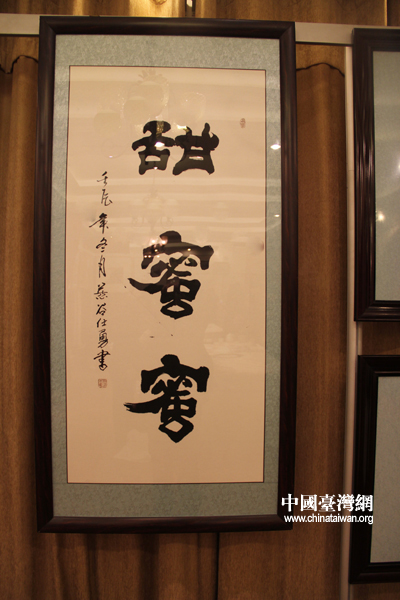 甜蜜蜜
壬辰年冬月仕勇書
中國臺灣網
www.chinataiwan.org